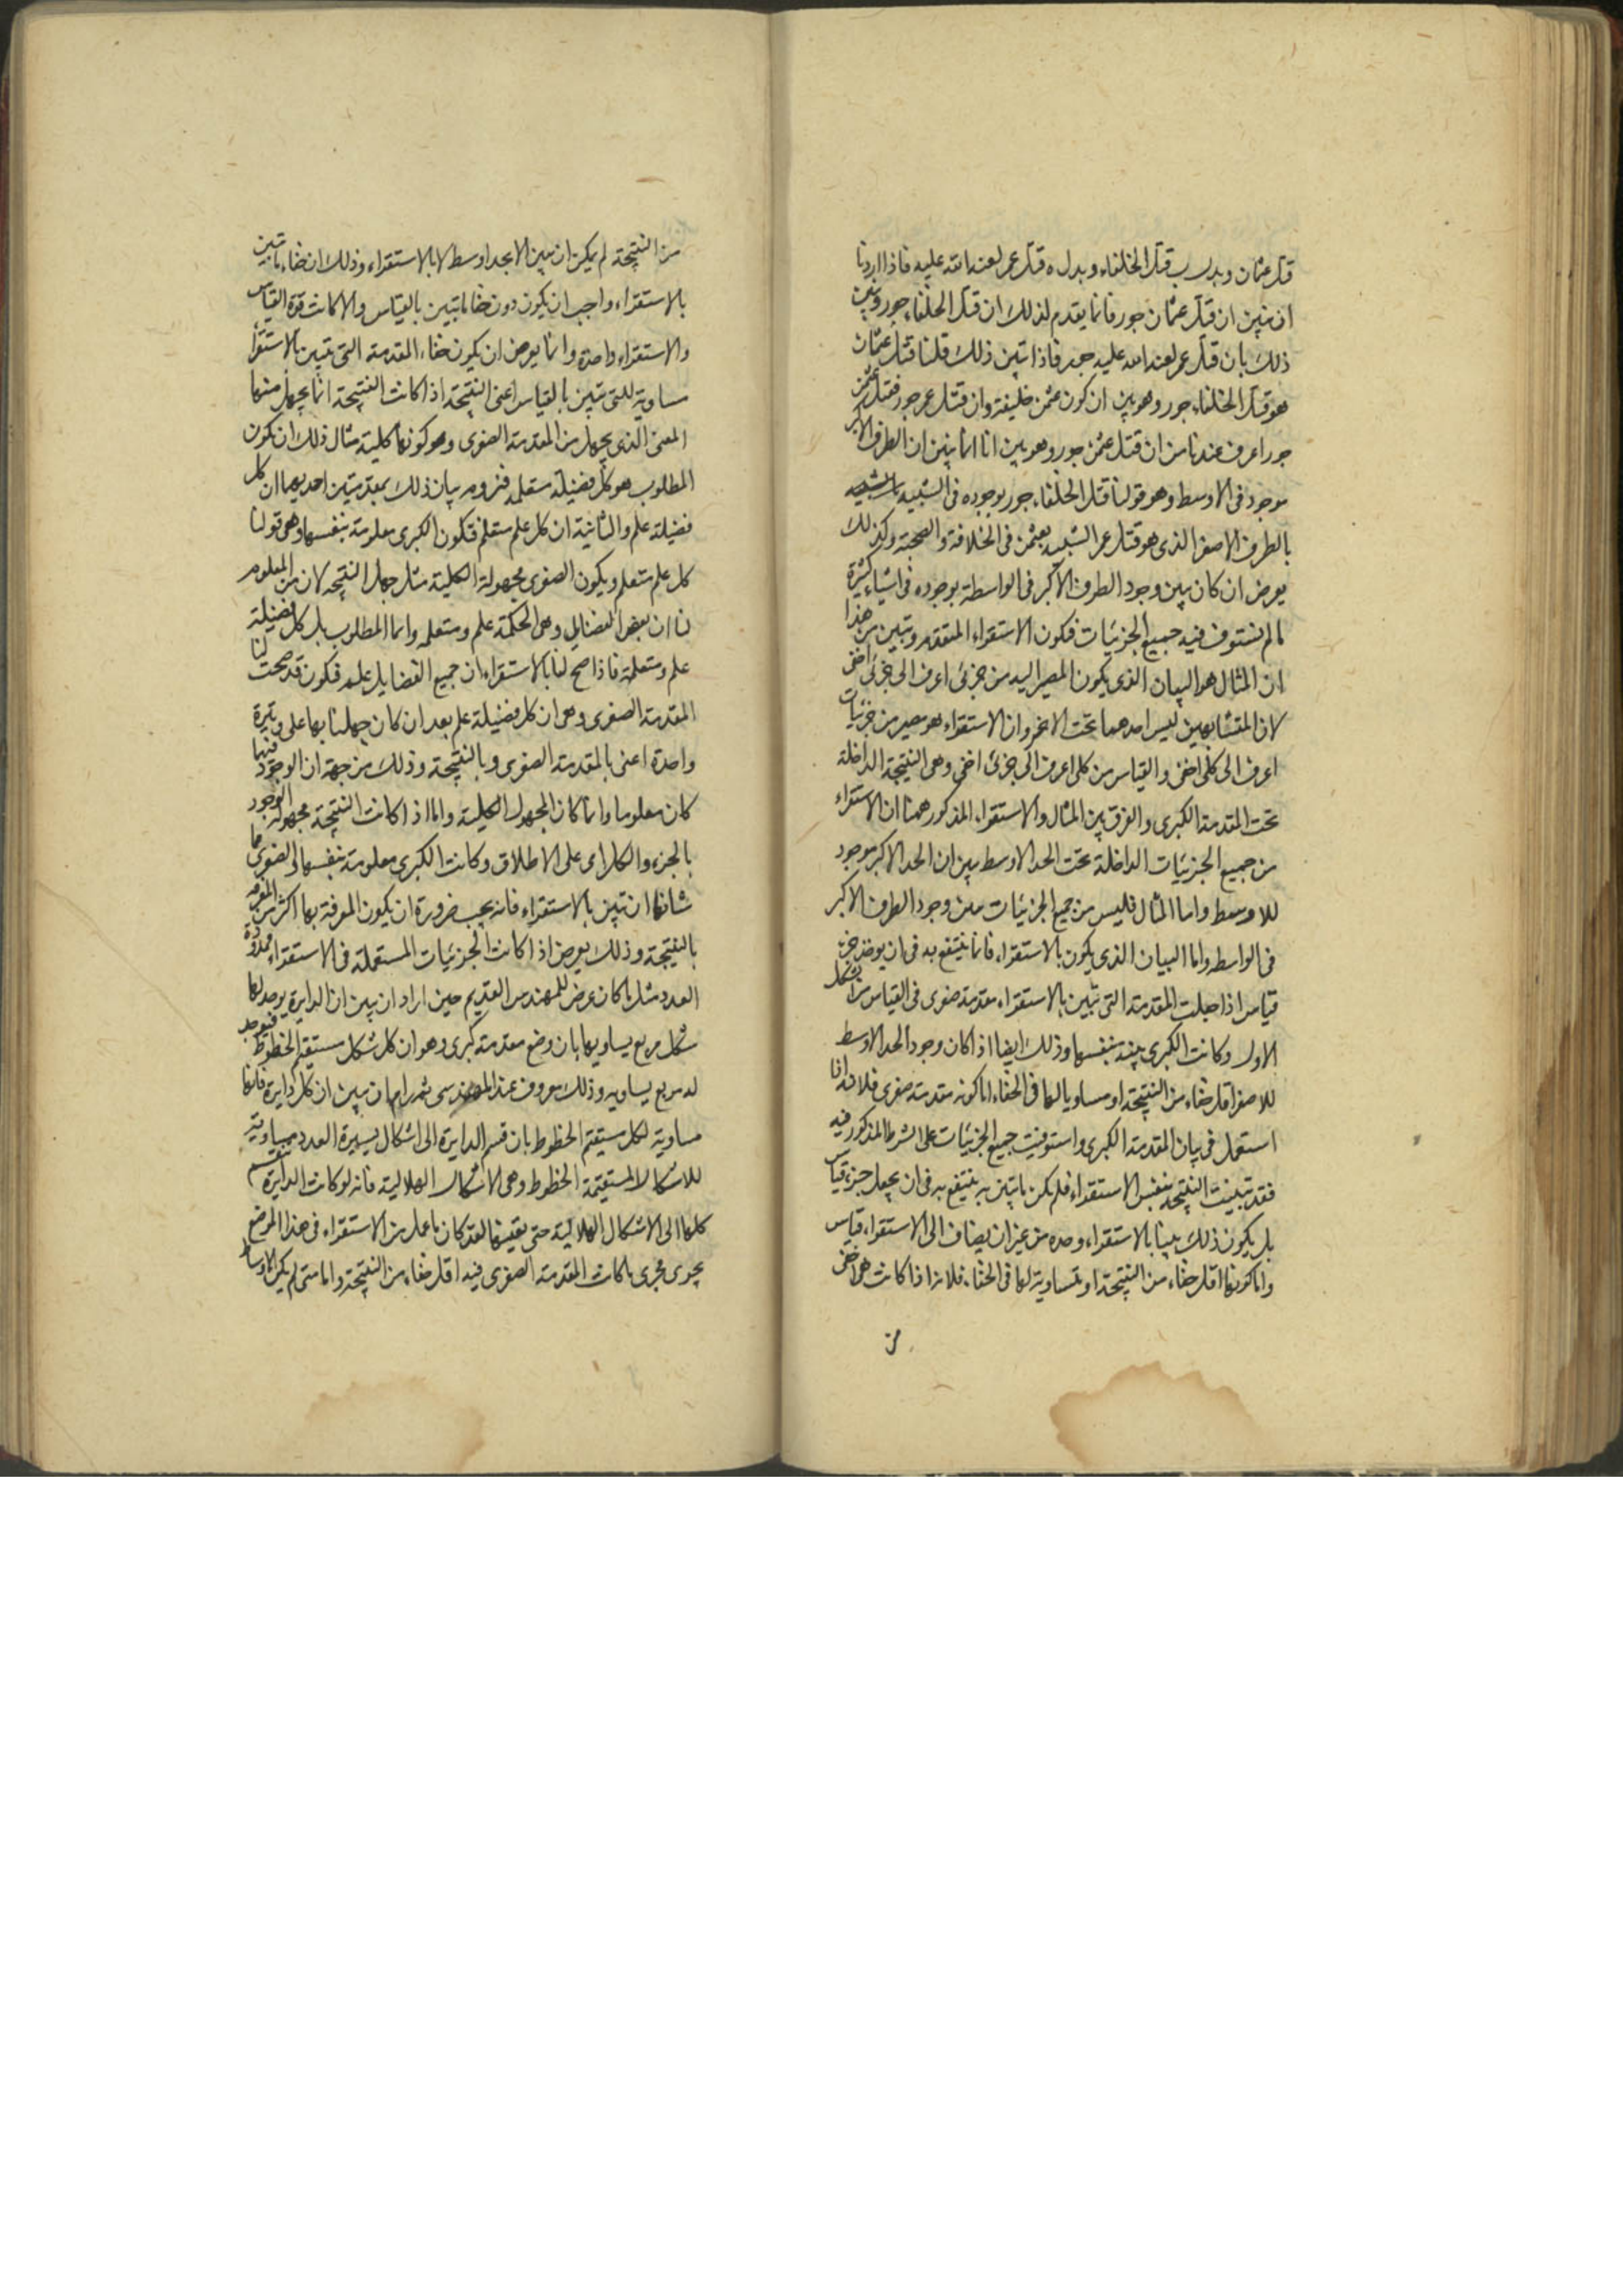 قتل عثمان وبدل ب قتل الخلفاء وبدل ه قتل عمر لعنه الله عليه فاذا اردنا
ان نبين ان قتل عثمان جور فانا يقدم لذلك ان قتل الخلفاء جور ونبين
ذلك بان قتل عمر لعنه الله عليه جور فاذا تبين ذلك قلنا قتل عثمان
هو قتل الخلفاء جور وهو بين ان كون عثمن خليفة وان قتل عمر جور فقتل عثمن
جور اعرف عندنا من ان قتل عثمن جور وهو بين انا انما نبين ان الطرف الاكبر
موجود فى الاوسط وهو قولنا قتل الخلفاء جور بوجوده فى الشبيه
بالطرف الاصغر الذى هو قتل عمر الشبيه بعثمن فى الخلافة والصحبة وكذلك
يعرض ان كان يبين وجود الطرف الاكبر فى الواسطة بوجوده فى اشياء كثيرة
ما لم نستوف فيه جميع الجزئيات فكون الاستقراء المتقدم وتبين من هذا
ان المثال هو البيان الذى يكون المصير اليه من جزئى اعرف الى جزئى اخفى
لان المتشابهين ليس احدهما تحت الاخر وان الاستقراء هو مصير من جزئيات
اعرف الى كلى اخفى والقياس من كلى اعرف الى جزئى اخفى وهى النتيجة الداخلة
تحت المقدمة الكبرى والفرق بين المثال والاستقراء المذكور همنا ان الاستقراء
من جميع الجزئيات الداخلة تحت الحد الاوسط يبين ان الحد الاكبر موجود
للاوسط واما المثال فليس من جميع الجزئيات يبين وجود الطرف الاكبر
فى الواسط واما البيان الذى يكون بالاستقراء فانا ننتفع به فى ان يوخذ جزء
قياس اذا جعلت المقدمة التى تبين بالاستقراء مقدمة صغرى فى القياس من الشكل
الاول وكانت الكبرى بينة بنفسها وذلك ايضا اذا كان وجود الحد الاوسط
للاصغر اقل خفاء من النتيجة او مساويا لها فى الخفاء اما كونه مقدمة صغرى فلانه اذا
استعمل فى بيان المقدمة الكبرى واستوفيت جميع الجزئيات على الشرط المذكور فيه
فقد تبينت النتيجة بنفس الاستقراء فلم يكن ما يتبين به ينتفع به فى ان يجعل جزء قياس
بل يكون ذلك بينا بالاستقراء وحده من غير ان يضاف الى الاستقراء قياس
واما كونها اقل خفاء من النتيجة او متساوية لها فى الخفاء فلانه اذا كانت هى اخفى
من
من النتيجة لم يكن ان يبين الا بحد اوسط لا بالاستقراء وذلك ان خفاء ما تبين
بالاستقراء واجب ان يكون دون خفاء ما تبين بالقياس والا كانت قوة القياس
والاستقراء واحدة وانما يعرض ان يكون خفاء المقدمة التى تتبين بالاستقراء
مساوية للتى تتبين بالقياس اعنى النتيجة اذا كانت النتيجة انما يجهل منها
المعنى الذى يجهل من المقدمة الصغرى وهو كونها كلية مثال ذلك ان يكون
المطلوب هو كل فضيلة متعلمه فنروم بيان ذلك بمقدمتين احديهما ان كل
فضيلة علم والثانية ان كل علم متعلم فتكون الكبرى معلومة بنفسها وهى قولنا
كل علم متعلم ويكون الصغرى مجهولة الكلية مثل جهل النتيجة لان من المعلوم
لنا ان بعض الفضايل وهى الحكمة علم ومتعلمه واما المطلوب بل كل فضيلة
علم ومتعلمة فاذا صح لنا بالاستقراء ان جميع الفضايل علم فكون قد صحت لنا
المقدمة الصغرى وهى ان كل فضيلة علم بعد ان كان جهلنا بها على وتيرة
واحدة اعنى بالمقدمة الصغرى وبالنتيجة وذلك من جهة ان الوجود فيهما
كان معلوما وانما كان المجهول الكلية واما اذا كانت النتيجة مجهولة الوجود
بالجزء والكل اى على الاطلاق وكانت الكبرى معلومة بنفسها والصغرى مما
شانها ان تبين بالاستقراء فانه يجب ضرورة ان يكون المعرفة بها اكثر من المعرفة
بالنتيجة وذلك يعرض اذا كانت الجزئيات المستعملة فى الاستقراء محدودة
العدد مثل ما كان عرض للمهندس القديم حين اراد ان يبين ان الدايرة يوجد لها
شكل مربع يساويها بان وضع مقدمة كبرى وهو ان كل شكل مستقيم الخطوط فيوجد
له مربع يساويه وذلك معروف عند المهندسى ثم رام ان يبين ان كل دايرة فانها
مساوية لكل مستقيم الخطوط بان قسم الدايرة الى اشكال يسيرة العدد مساوية
للاشكال المستقيمة الخطوط وهى الاشكال الهلالية فانه لو كانت الدايرة تنقسم
كلها الى الاشكال الهلالية حتى يفنيها لقد كان ما عمل من الاستقراء فى هذا الموضع
يجرى مجرى ما كانت المقدمة الصغرى فيه اقل خفاء من النتيجة واما متى لم يكن الاوساط